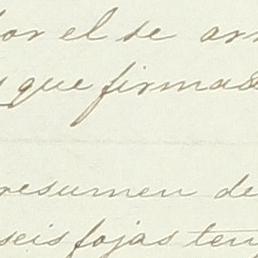 por el se arr
y que firmas
resumen de
seis fojas ten